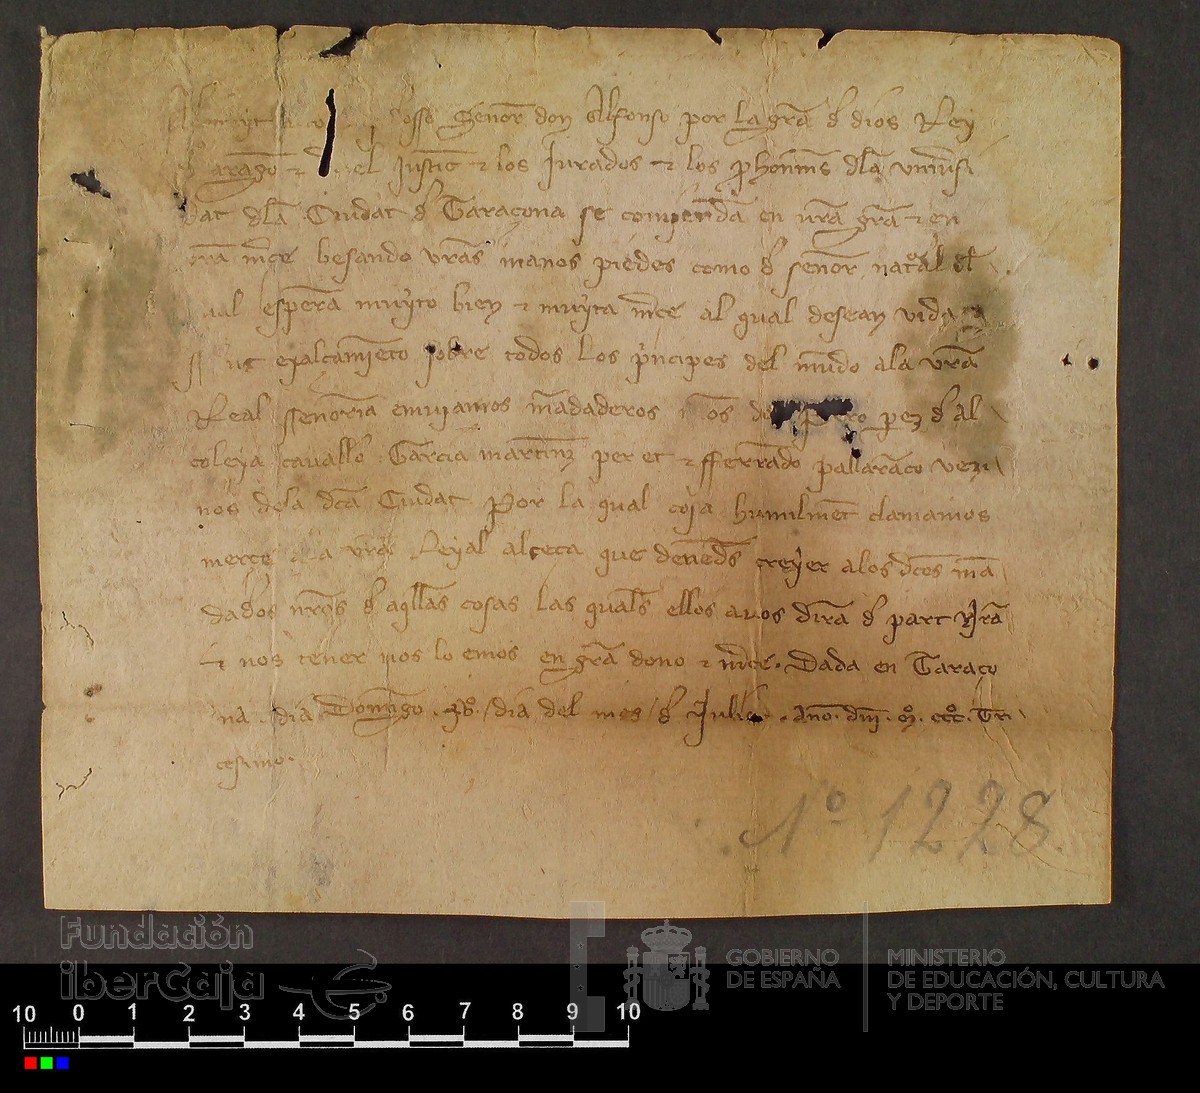 Senor don Alfonso por la gra d dios Rey
arago el Justic e los Jurados e los phomns dla vniusi
dat dla Ciudat d Taraçona se comienda en vra gra e en
mce besando vras manos piedes como d senor natal dl
ual espera muyto bien e muyta mce al qual desean vida
exalcamieto sobre todos los pncipes del mudo ala vra
Real ssenoria enuiamos madaderos nos do Pero perz d al
coleya cauallo Garcia martinz per et e fferrado pallaraco vezi
nos dela dca Ciudat Por la qual cosa humilmet clamamos
merçe a la vra Reyal alteça que deueds creyer alos dcos ma
daderos nros d aqllas cosas las quals ellos auos dira d part nra
e nos tener uos lo emos en gra dono e mce. Dada en Taraço
na dia Domigo dia del mes d Julio. Ano. dni. m. ccc. Tri
cesimo.
Nº 1228
Fundación
iberCaja
GOBIERNO
DE ESPAÑA
MINISTERIO
DE EDUCACIÓN, CULTURA
Y DEPORTE
10 0 1 2 3 4 5 6 7 8 9 10